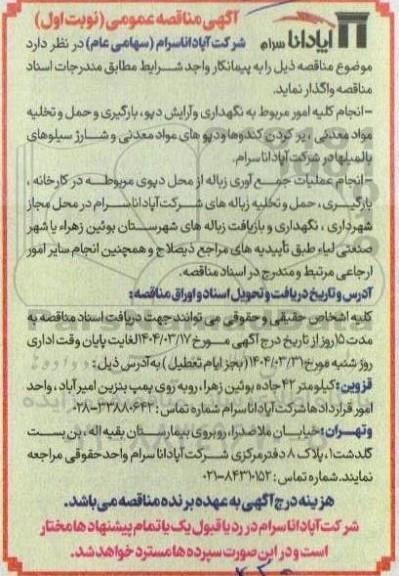 آگهی مناقصه عمومی (نوبت اول)
آپادانا سرام
شرکت آپادانا سرام (سهامی عام) در نظر دارد
موضوع مناقصه ذیل را به پیمانکار واجد شرایط مطابق مندرجات اسناد
مناقصه واگذار نماید.
- انجام کلیه امور مربوط به نگهداری و آرایش دپو، بارگیری و حمل و تخلیه
مواد معدنی، پر کردن کندوها و دپوهای مواد معدنی و شارژ سیلوهای
بالمیلها در شرکت آپادانا سرام.
- انجام عملیات جمع آوری زباله از محل دپوی مربوطه در کارخانه،
بارگیری، حمل و تخلیه زباله های شرکت آپادانا سرام در محل مجاز
شهرداری، نگهداری و بازیافت زباله های شهرستان بوئین زهراء یا شهر
صنعتی لیاء طبق تأییدیه های مراجع ذیصلاح و همچنین انجام سایر امور
ارجاعی مرتبط و مندرج در اسناد مناقصه.
آدرس و تاریخ دریافت و تحویل اسناد و اوراق مناقصه:
کلیه اشخاص حقیقی و حقوقی می توانند جهت دریافت اسناد مناقصه به
مدت ۱۵ روز از تاریخ درج آگهی مورخ ۱۴۰۴/۰۳/۱۷ لغایت پایان وقت اداری
روز شنبه مورخ ۱۴۰۴/۰۳/۳۱ (بجز ایام تعطیل) به آدرس ذیل:
قزوین: کیلومتر ۴۲ جاده بوئین زهرا، روبه روی پمپ بنزین امیرآباد، واحد
امور قراردادها شرکت آپادانا سرام شماره تماس: ۳۳۸۸۰۶۴۲-۰۲۸
و تهران: خیابان ملاصدرا، روبروی بیمارستان بقیه اله، بن بست
گلدشت۱، پلاک ۸ دفتر مرکزی شرکت آپادانا سرام واحد حقوقی مراجعه
نمایند. شماره تماس: ۸۴۳۱۰۱۵۲-۰۲۱
هزینه درج آگهی به عهده برنده مناقصه می باشد.
شرکت آپادانا سرام در رد یا قبول یک یا تمام پیشنهادها مختار
است و در این صورت سپرده ها مسترد خواهد شد.